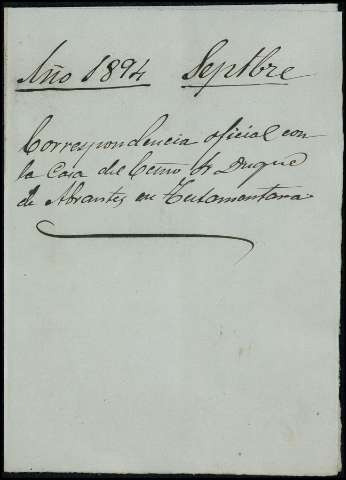 Año 1894 Septbre
Correspondencia oficial con
la Casa del Ecmo Sr Duque
de Abrantes en Testamentaria